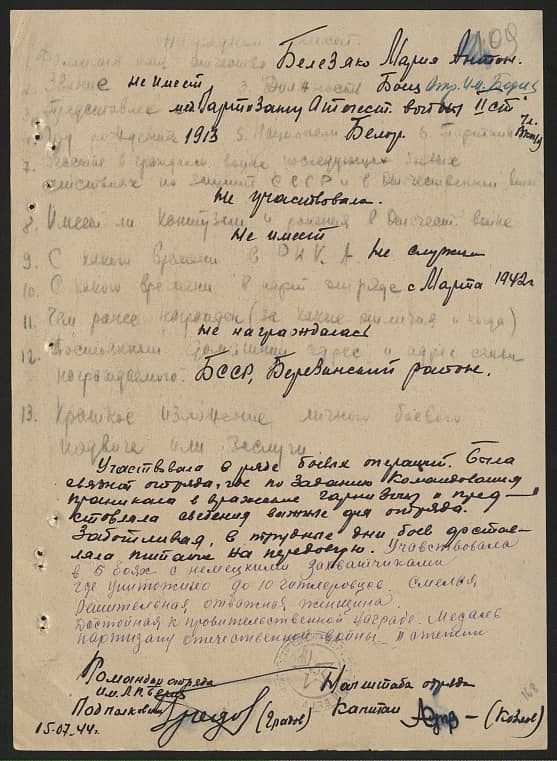 109
Наградной лист
1. Фамилия имя отчество Белезяко Мария Антон.
2. Звание не имеет 3. Должность Боец отр. им. Берия
Представлена мед. "партизану Отечест. войны II ст"
4. Год рождения 1913 5. Националь Белор. 6. Партийн
7. Участие в гражданск войне последующих боевых
действиях по защите СССР и в Отечественной войне
Не участвовала.
8. Имеет ли контузии и ранения в Отечест. войне
Не имеет
9. С какого времени в РККА Не служил
10. С какого времени в парт отряде с Марта 1942 г
11. Чем ранее награжден (за какие отличия и когда)
не награждалась
12. Постоянный домашний адрес и адрес семьи
награждаемого. БССР, Березинский район.
13. Краткое изложение личного боевого
подвига или заслуги
Участвовала в ряде боевых операций. Была
связной отряда, где по заданию Командования
проникала в вражеские гарнизоны и пред-
ставляла сведения важные для отряда.
Заботливая, в трудные дни боев достав-
ляла питание на передовую. Учавствовала
в 5 боях с немецкими захватчиками
где уничтожено до 10 гитлеровцев. Смелая
Решительная отважная женщина.
Достойная к правительственной награде. Медаль
партизану отечественной войны II степени
Командир отряда Нач штаба отряда
им. Л.П. Берия
Подполковник (Градов) Капитан (Козлов)
15.07.44г.
168